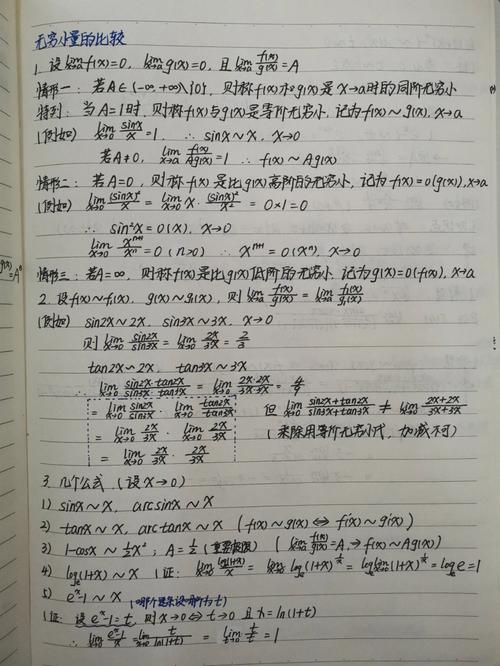 无穷小量的比较
1. 设 lim_{x→a} f(x)=0, lim_{x→a} g(x)=0, 且 lim_{x→a} f(x)/g(x) = A
情形一: 若A∈(-∞,+∞)\{0}, 则称f(x)和g(x)是x→a时的同阶无穷小
特别: 当A=1时, 则称f(x)与g(x)是等阶无穷小, 记为f(x)~g(x), x→a
(例如) lim_{x→0} sinx/x = 1, ∴ sinx~x, x→0
若A≠0, lim_{x→a} f(x)/Ag(x) = 1 ∴ f(x)~Ag(x)
情形二: 若A=0, 则称f(x)是比g(x)高阶的无穷小, 记为f(x)=o(g(x)), x→a
(例如) lim_{x→0} (sinx)²/x = lim_{x→0} x·(sinx)²/x² = 0×1=0
∴ sin²x=o(x), x→0
lim_{x→0} x^{n+1}/x^n = 0 (n>0) ∴ x^{n+1}=o(x^n), x→0
情形三: 若A=∞, 则称f(x)是比g(x)低阶的无穷小, 记为g(x)=o(f(x)), x→a
2. 设f(x)~f₁(x), g(x)~g₁(x), 则 lim_{x→a} f(x)/g(x) = lim_{x→a} f₁(x)/g₁(x)
(例如) sin2x~2x, sin3x~3x, x→0
则 lim_{x→0} sin2x/sin3x = lim_{x→0} 2x/3x = 2/3
tan2x~2x, tan3x~3x
∴ lim_{x→0} sin2x·tan2x/sin3x·tan3x = lim_{x→0} 2x·2x/3x·3x = 4/9
= lim_{x→0} sin2x/sin3x · lim_{x→0} tan2x/tan3x
但 lim_{x→0} sin2x+tan2x/sin3x+tan3x ≠ lim_{x→0} 2x+2x/3x+3x
= lim_{x→0} 2x/3x · lim_{x→0} 2x/3x
(乘除用等阶无穷小代, 加减不可)
= lim_{x→0} 2x/3x · 2x/3x
3. 几个公式 (设x→0)
1) sinx~x, arcsinx~x
2) tanx~x, arctanx~x (f(x)~g(x) ⇔
3) 1-cosx~½x²; A=½ (重要极限) ( lim_{x→a} f(x)/g(x)=A, ⇒ f(x)~Ag(x))
4) log_e(1+x)~x (证:
= log_e e = 1
5) e^x-1~x (哪个是未设哪个为t)
(证: 设e^x-1=t, 则x→0⇔t→0 且x=ln(1+t)
∴ lim_{x→0} e^x-1/x = lim_{t→0} t/ln(1+t) = lim_{t→0} t/t = 1